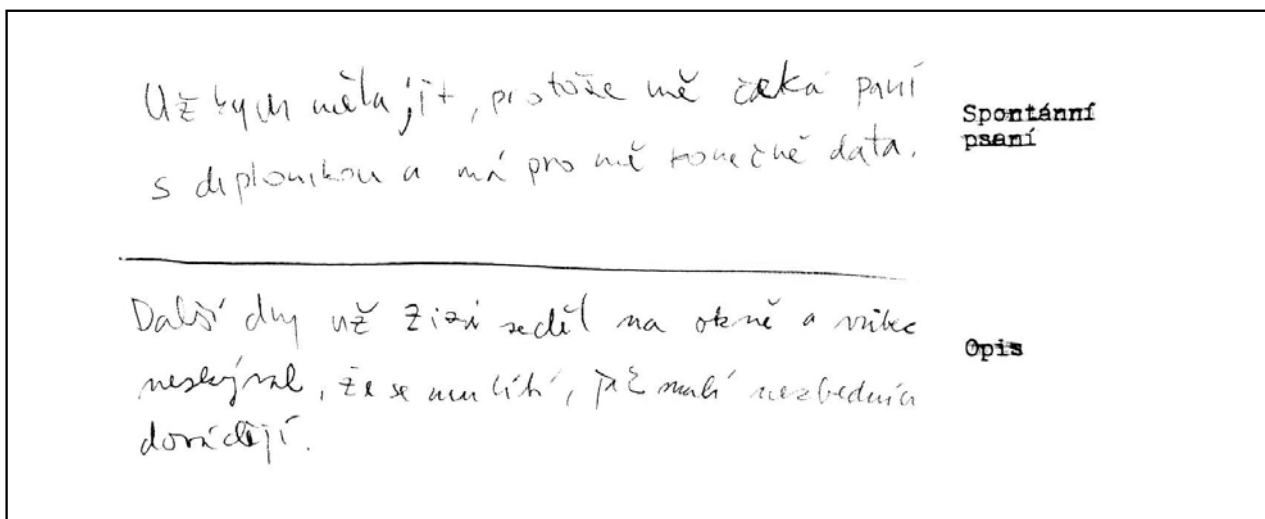 Už bych měla jít, protože mě čeká paní
s diplomkou a má pro mě konečně data.
Spontánní
psaní
Další dny už Zizi seděl na okně a vůbec
neskrýval, že se mu líbí, jak malí nezbedníci
dovádějí.
Opis